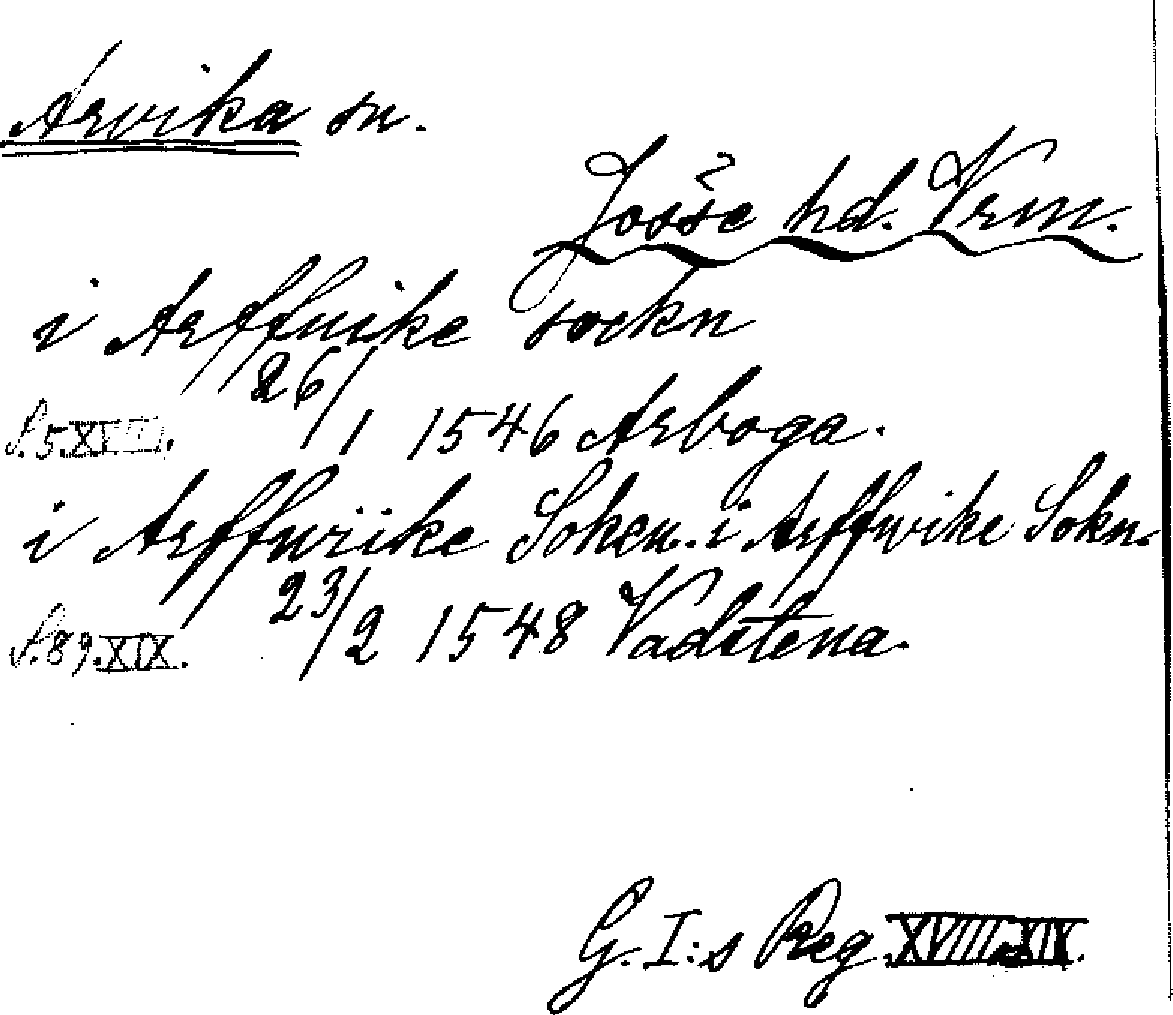 Arvika sn.
Josse hd. Vrm.
i Arffuike sockn
S. 5. XVIII. 26/1 1546 Arboga.
i Arffwiike Soken. i Arffwike Sokn.
S. 89. XIX. 23/2 1548 Vadstena.
G. I:s Reg. XVIII, XIX.